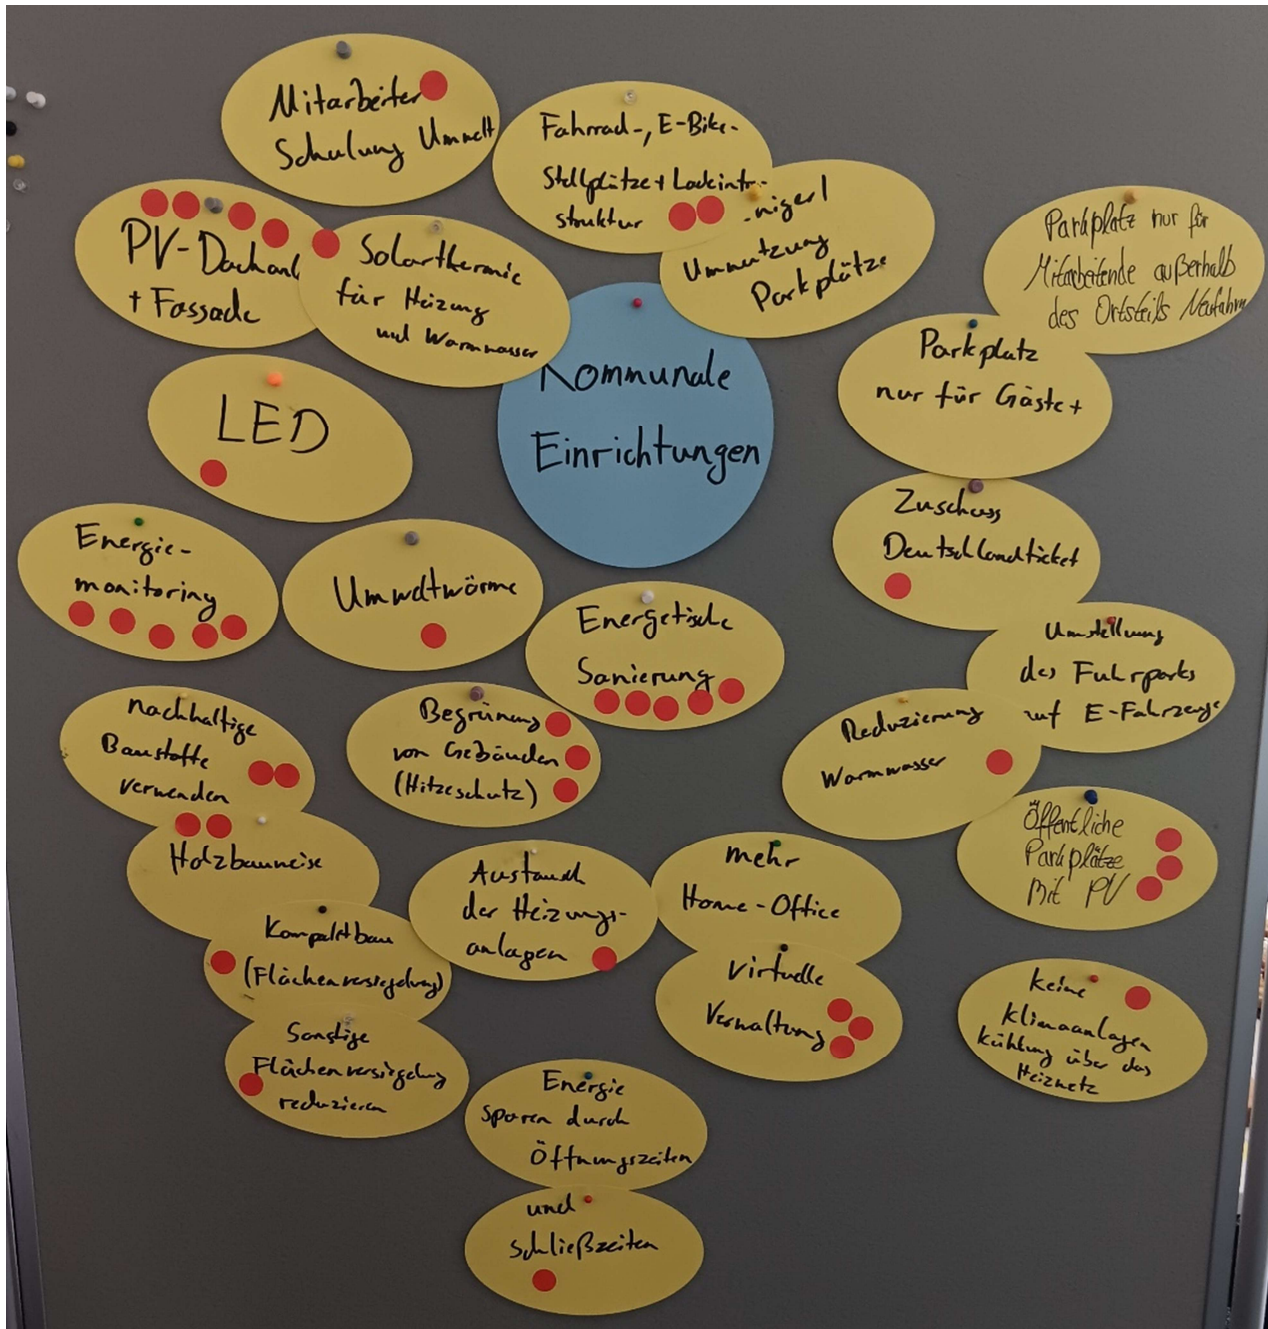 Mitarbeiter
Schulung Umwelt
Fahrrad-, E-Bike-
Stellplätze + Ladeinfra-
struktur
Umnutzung
Parkplätze
Parkplatz nur für
Mitarbeitende außerhalb
des Ortsteils Neufahrn
PV-Dachanl
+ Fassade
Solarthermie
für Heizung
und Warmwasser
Kommunale
Einrichtungen
Parkplatz
nur für Gäste +
LED
Zuschuss
Deutschlandticket
Energie-
monitoring
Umweltwärme
Energetische
Sanierung
Umstellung
des Fuhrparks
auf E-Fahrzeuge
nachhaltige
Baustoffe
verwenden
Begrünung
von Gebäuden
(Hitzeschutz)
Reduzierung
Warmwasser
Holzbauweise
Öffentliche
Parkplätze
Mit PV
Austausch
der Heizungs-
anlagen
mehr
Home-Office
Kompaktbau
(Flächenversiegelung)
virtuelle
Verwaltung
keine
Klimaanlagen
Kühlung über das
Heiznetz
Sonstige
Flächenversiegelung
reduzieren
Energie
sparen durch
Öffnungszeiten
und
Schließzeiten